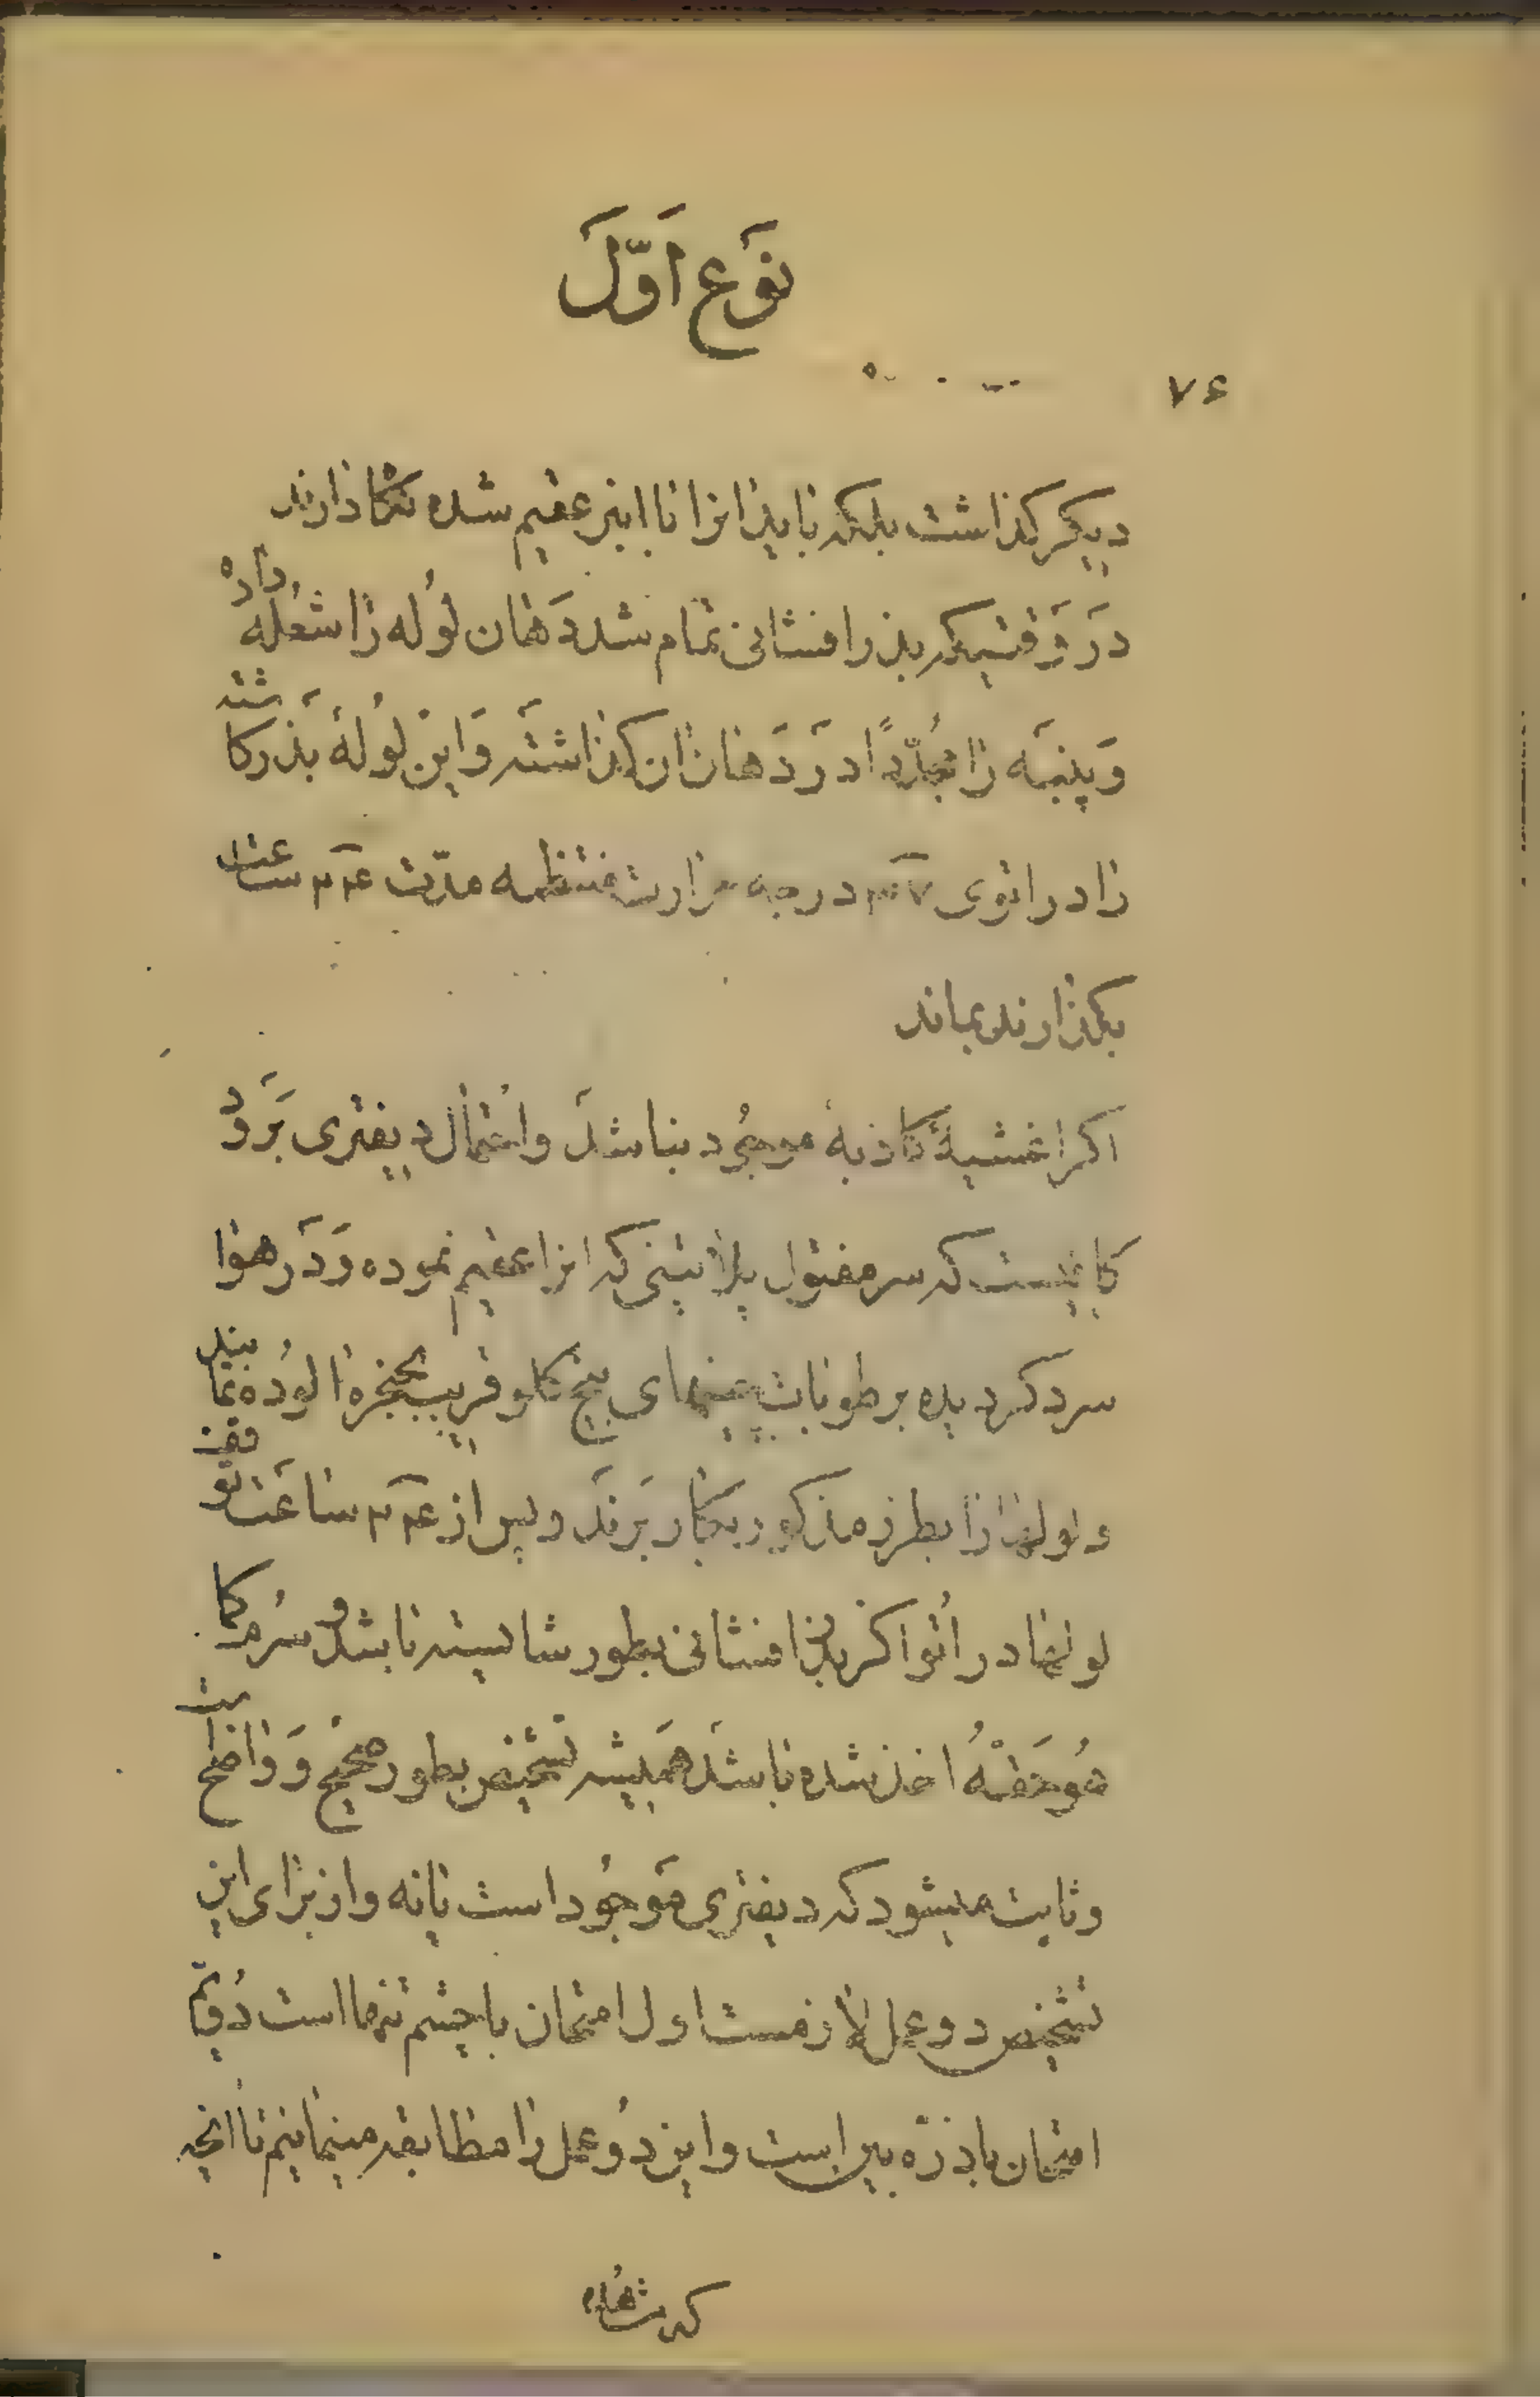 نَوع اَوَّلَ
۷۶
دیکر کذاشت بلکه باید انرا با انبر عقیم شده نکاه دارند
دَر وَقتیکه بذر افشانی تمام شد دَهان لوُله را شعله داده
وَ پنبَه را مجُدّداً دَر دَهان ان کذاشتَه وَ این لوُلهٔ بَذر کاشته
را در اتوی ۳۷ درجه حرارت منتظمه مدّت ۲۴ ساعت
بکذارند بماند
اکر اغشیهٔ کاذبهٔ موجوُد نباشدَ و احتمال دیفتری بَرَود
کافیست که سر مفتول پلاتینی که انرا عقیم نموده وَ دَر هوا
سرد کردیده برطوبات بیخ کلو و قریب بحنجره الوُده نمایند
و لولها را بطرز مذکور بکار بَرندَ و پس از ۲۴ ساعَت توقف
لولها در اتُو اکر بذر افشانی بطور شایسته باشد و سرُم
اخذ شده باشدَ هَمیشه تشخیص بطور صحیح وَ واضح است
و ثابت میشود که دیفتری مَوجوُد است یا نه و از برای این
تشخیص دو عمل لازمست اول امتحان با چشم تنها است دُویّم
امتحان با ذرّه بین است و این دوُ عمل را مطابقه مینمائیم با انچه
که